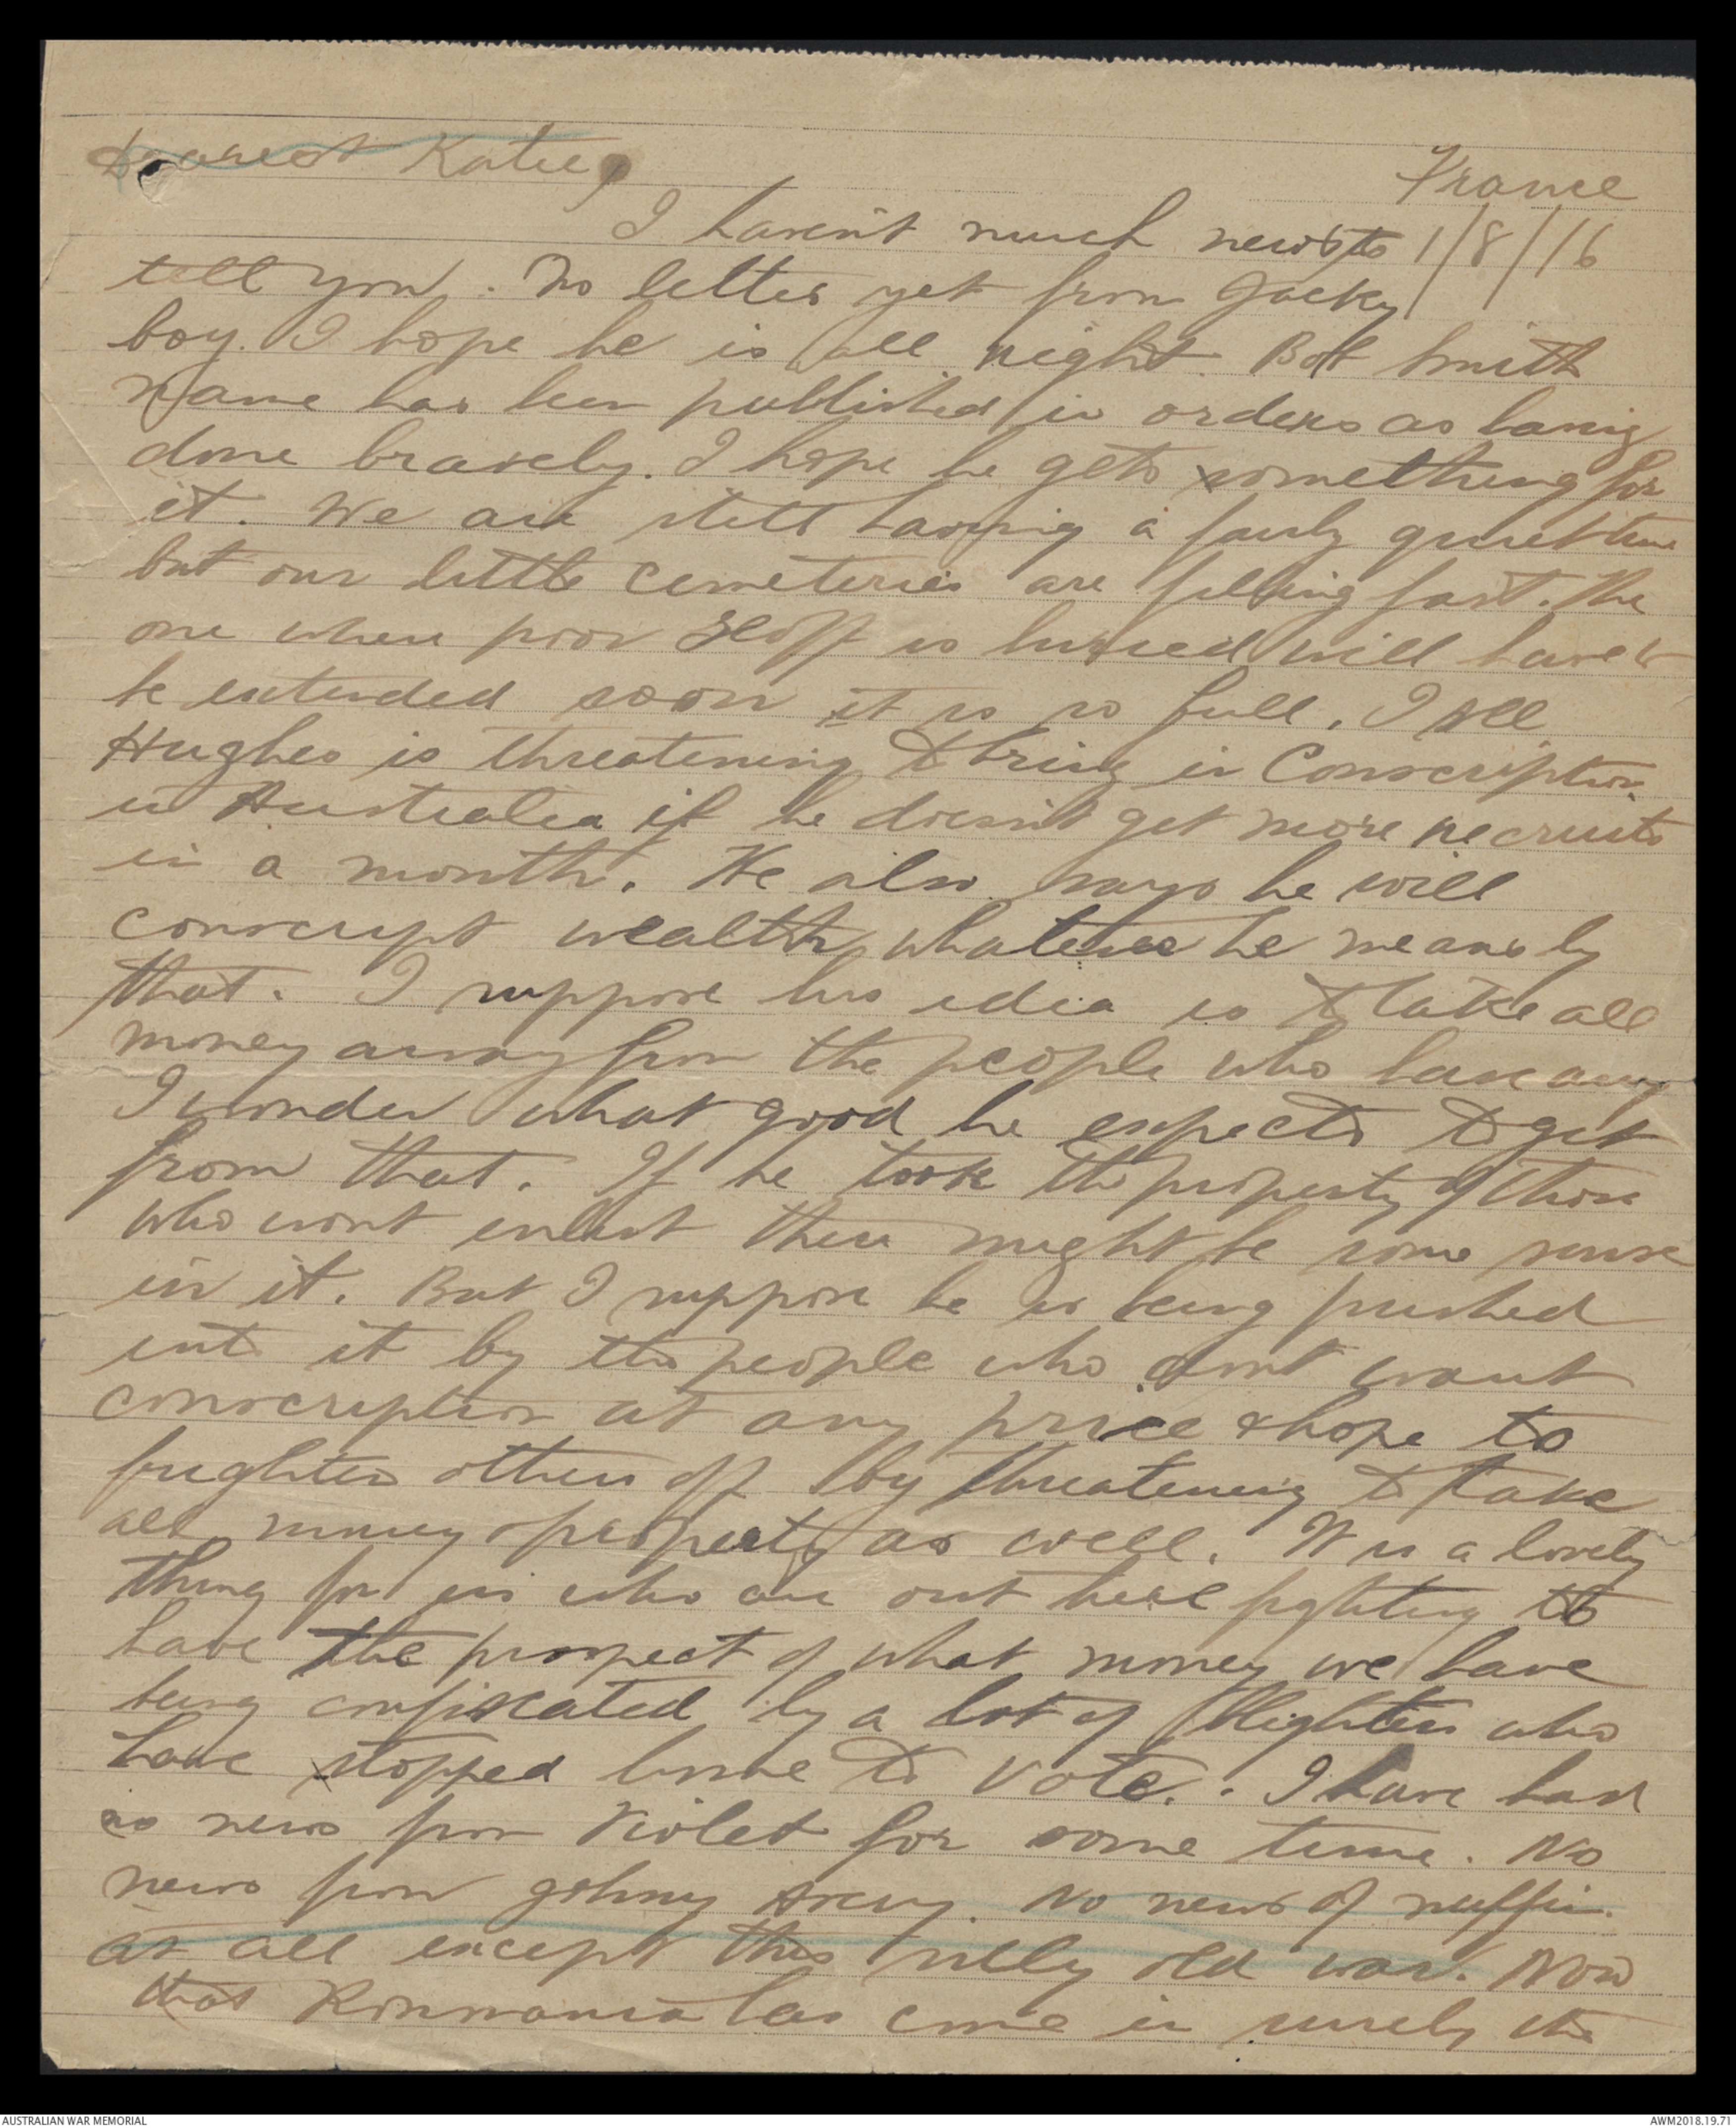 Dearest Katie,
France
I haven't much news to 1/8/16
tell you. No letter yet from Jacky
boy. I hope he is all right. Bob Smith
name has been published in orders as having
done bravely. I hope he gets something for
it. We are still having a fairly quiet time
but our little cemeteries are filling fast. The
one where poor is buried will have to
be extended soon it is so full. I see
Hughes is threatening to bring in Conscription
in Australia if he doesn't get more recruits
in a month. He also says he will
conscript wealth, whatever he means by
that. I suppose his idea is to take all
money away from the people who have any
I wonder what good he expects to get
from that. If he took the property of those
who wont enlist there might be some sense
in it. But I suppose he is being pushed
into it by the people who dont want
conscription at any price & hope to
frighten others off by threatening to take
all money & property as well. It is a lovely
thing for us who are out here fighting to
have the prospect of what money we have
being confiscated by a lot of blighters who
have stopped home to vote. I have had
no news from Violet for some time. No
news from Johnny. No news of nuffin
at all except this silly old war. Now
that Roumania has come in surely the
AUSTRALIAN WAR MEMORIAL
AWM2018.19.71